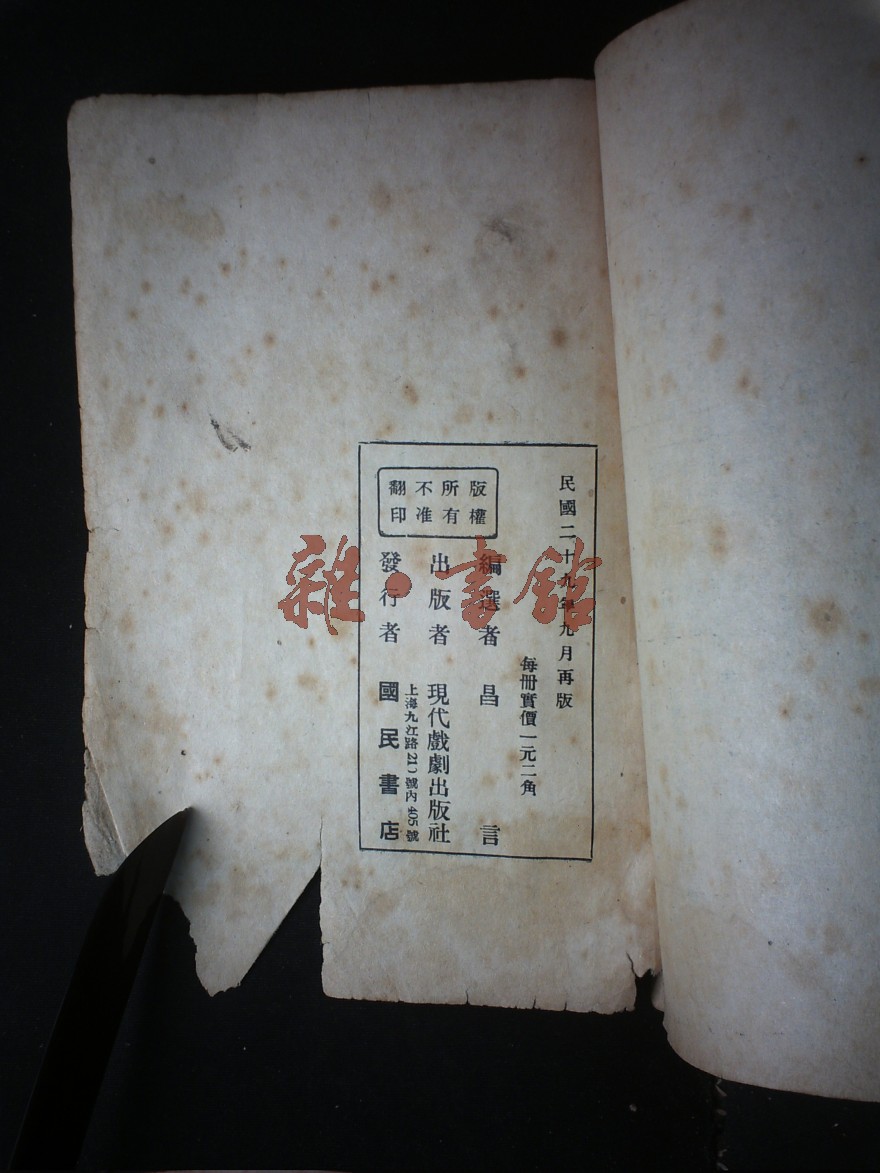 民國二十九年九月再版
每冊實價一元二角
版權
所有
不准
翻印
編選者 昌言
出版者 現代戲劇出版社
上海九江路210號內405號
發行者 國民書店
雜·書館